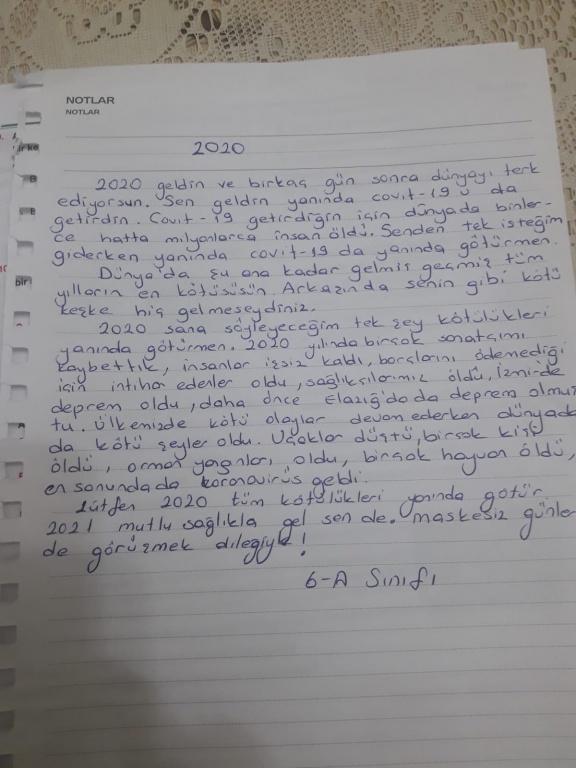 NOTLAR
NOTLAR
2020
2020 geldin ve birkaç gün sonra dünyayı terk
ediyorsun. Sen geldin yanında covit-19 u da
getirdin. Covit-19 getirdiğin için dünyada binler-
ce hatta milyonlarca insan öldü. Senden tek isteğim
giderken yanında covit-19 da yanında götürmen.
Dünya'da şu ana kadar gelmiş geçmiş tüm
yılların en kötüsüsün. Arkazında senin gibi kötü
keşke hiç gelmeseydiniz.
2020 sana söyleyeceğim tek şey kötülükleri
yanında götürmen. 2020 yılında birçok sanatçımı
kaybettik, insanlar işsiz kaldı, borçlarını ödemediği
için intihar edenler oldu, sağlıkçılarımız öldü, İzmirde
deprem oldu, daha önce Elazığ'da da deprem olmuş
tu. Ülkemizde kötü olaylar devam ederken dünyada
da kötü şeyler oldu. Uçaklar düştü, birçok kişi
öldü, orman yangınları oldu, birçok hayvan öldü,
en sonunda da koronavirüs geldi.
Lütfen 2020 tüm kötülükleri yanında götür.
2021 mutlu sağlıkla gel sen de. maskesiz günler
de görüşmek dileğiyle!
6-A Sınıfı